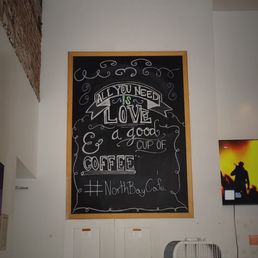 ALL YOU NEED
IS
LOVE
& a good
CUP OF
COFFEE
#NorthBayCafe